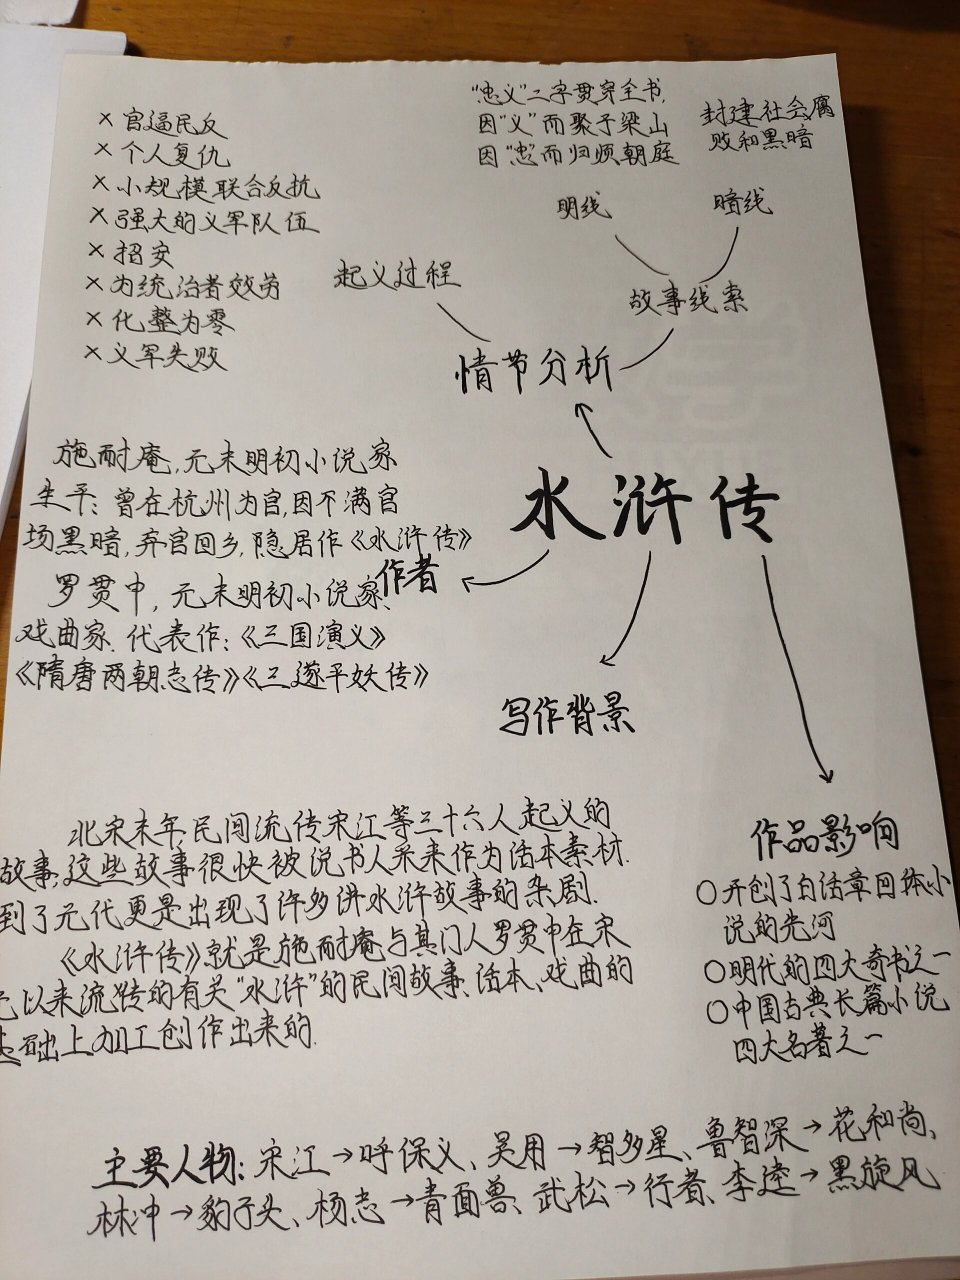 "忠义"二字贯穿全书,
因"义"而聚于梁山
因"忠"而归顺朝庭
封建社会腐
败和黑暗
明线
暗线
故事线索
× 官逼民反
× 个人复仇
× 小规模联合反抗
× 强大的义军队伍
× 招安
× 为统治者效劳
× 化整为零
× 义军失败
起义过程
情节分析
水浒传
施耐庵,元末明初小说家
生平:曾在杭州为官,因不满官
场黑暗,弃官回乡,隐居作《水浒传》
罗贯中,元末明初小说家、
戏曲家.代表作:《三国演义》
《隋唐两朝志传》《三遂平妖传》
作者
写作背景
北宋末年,民间流传宋江等三十六人起义的
故事,这些故事很快被说书人采来作为话本素材.
到了元代更是出现了许多讲水浒故事的杂剧.
《水浒传》就是施耐庵与其门人罗贯中在宋
元以来流传的有关"水浒"的民间故事、话本、戏曲的
基础上加工创作出来的.
作品影响
○开创了白话章回体小
说的先河
○明代的四大奇书之一
○中国古典长篇小说
四大名著之一
主要人物:宋江→呼保义、吴用→智多星、鲁智深→花和尚、
林冲→豹子头、杨志→青面兽、武松→行者、李逵→黑旋风